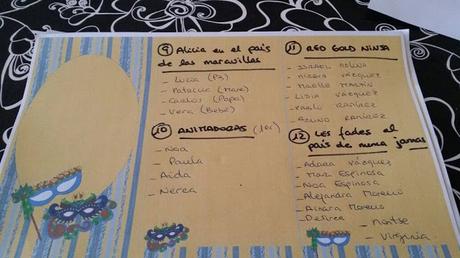 9 Alicia en el país
de las maravillas
- Lucía (P3)
- Patricia (Mare)
- Carlos (Papa)
- Vera (Bebé)
10 ANIMADORAS (1er)
- Noa
- Paula
- Aida
- Nerea
11 RED GOLD NINJA
- ISRAEL MOLINA
- VÁZQUEZ
- MARTÍN
- LIDIA VÁZQUEZ
- PABLO RAMÍREZ
- RAMÍREZ
12 Les fades el
país de nunca jamas
- Adara Vázquez
- Mar Espinosa
- Noa Espinosa
- Alejandra Moreno
- Ainara Moreno
- Desiree
- Montse
- Virginia